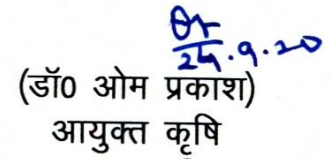 24.9.20
(डॉ0 ओम प्रकाश)
आयुक्त कृषि